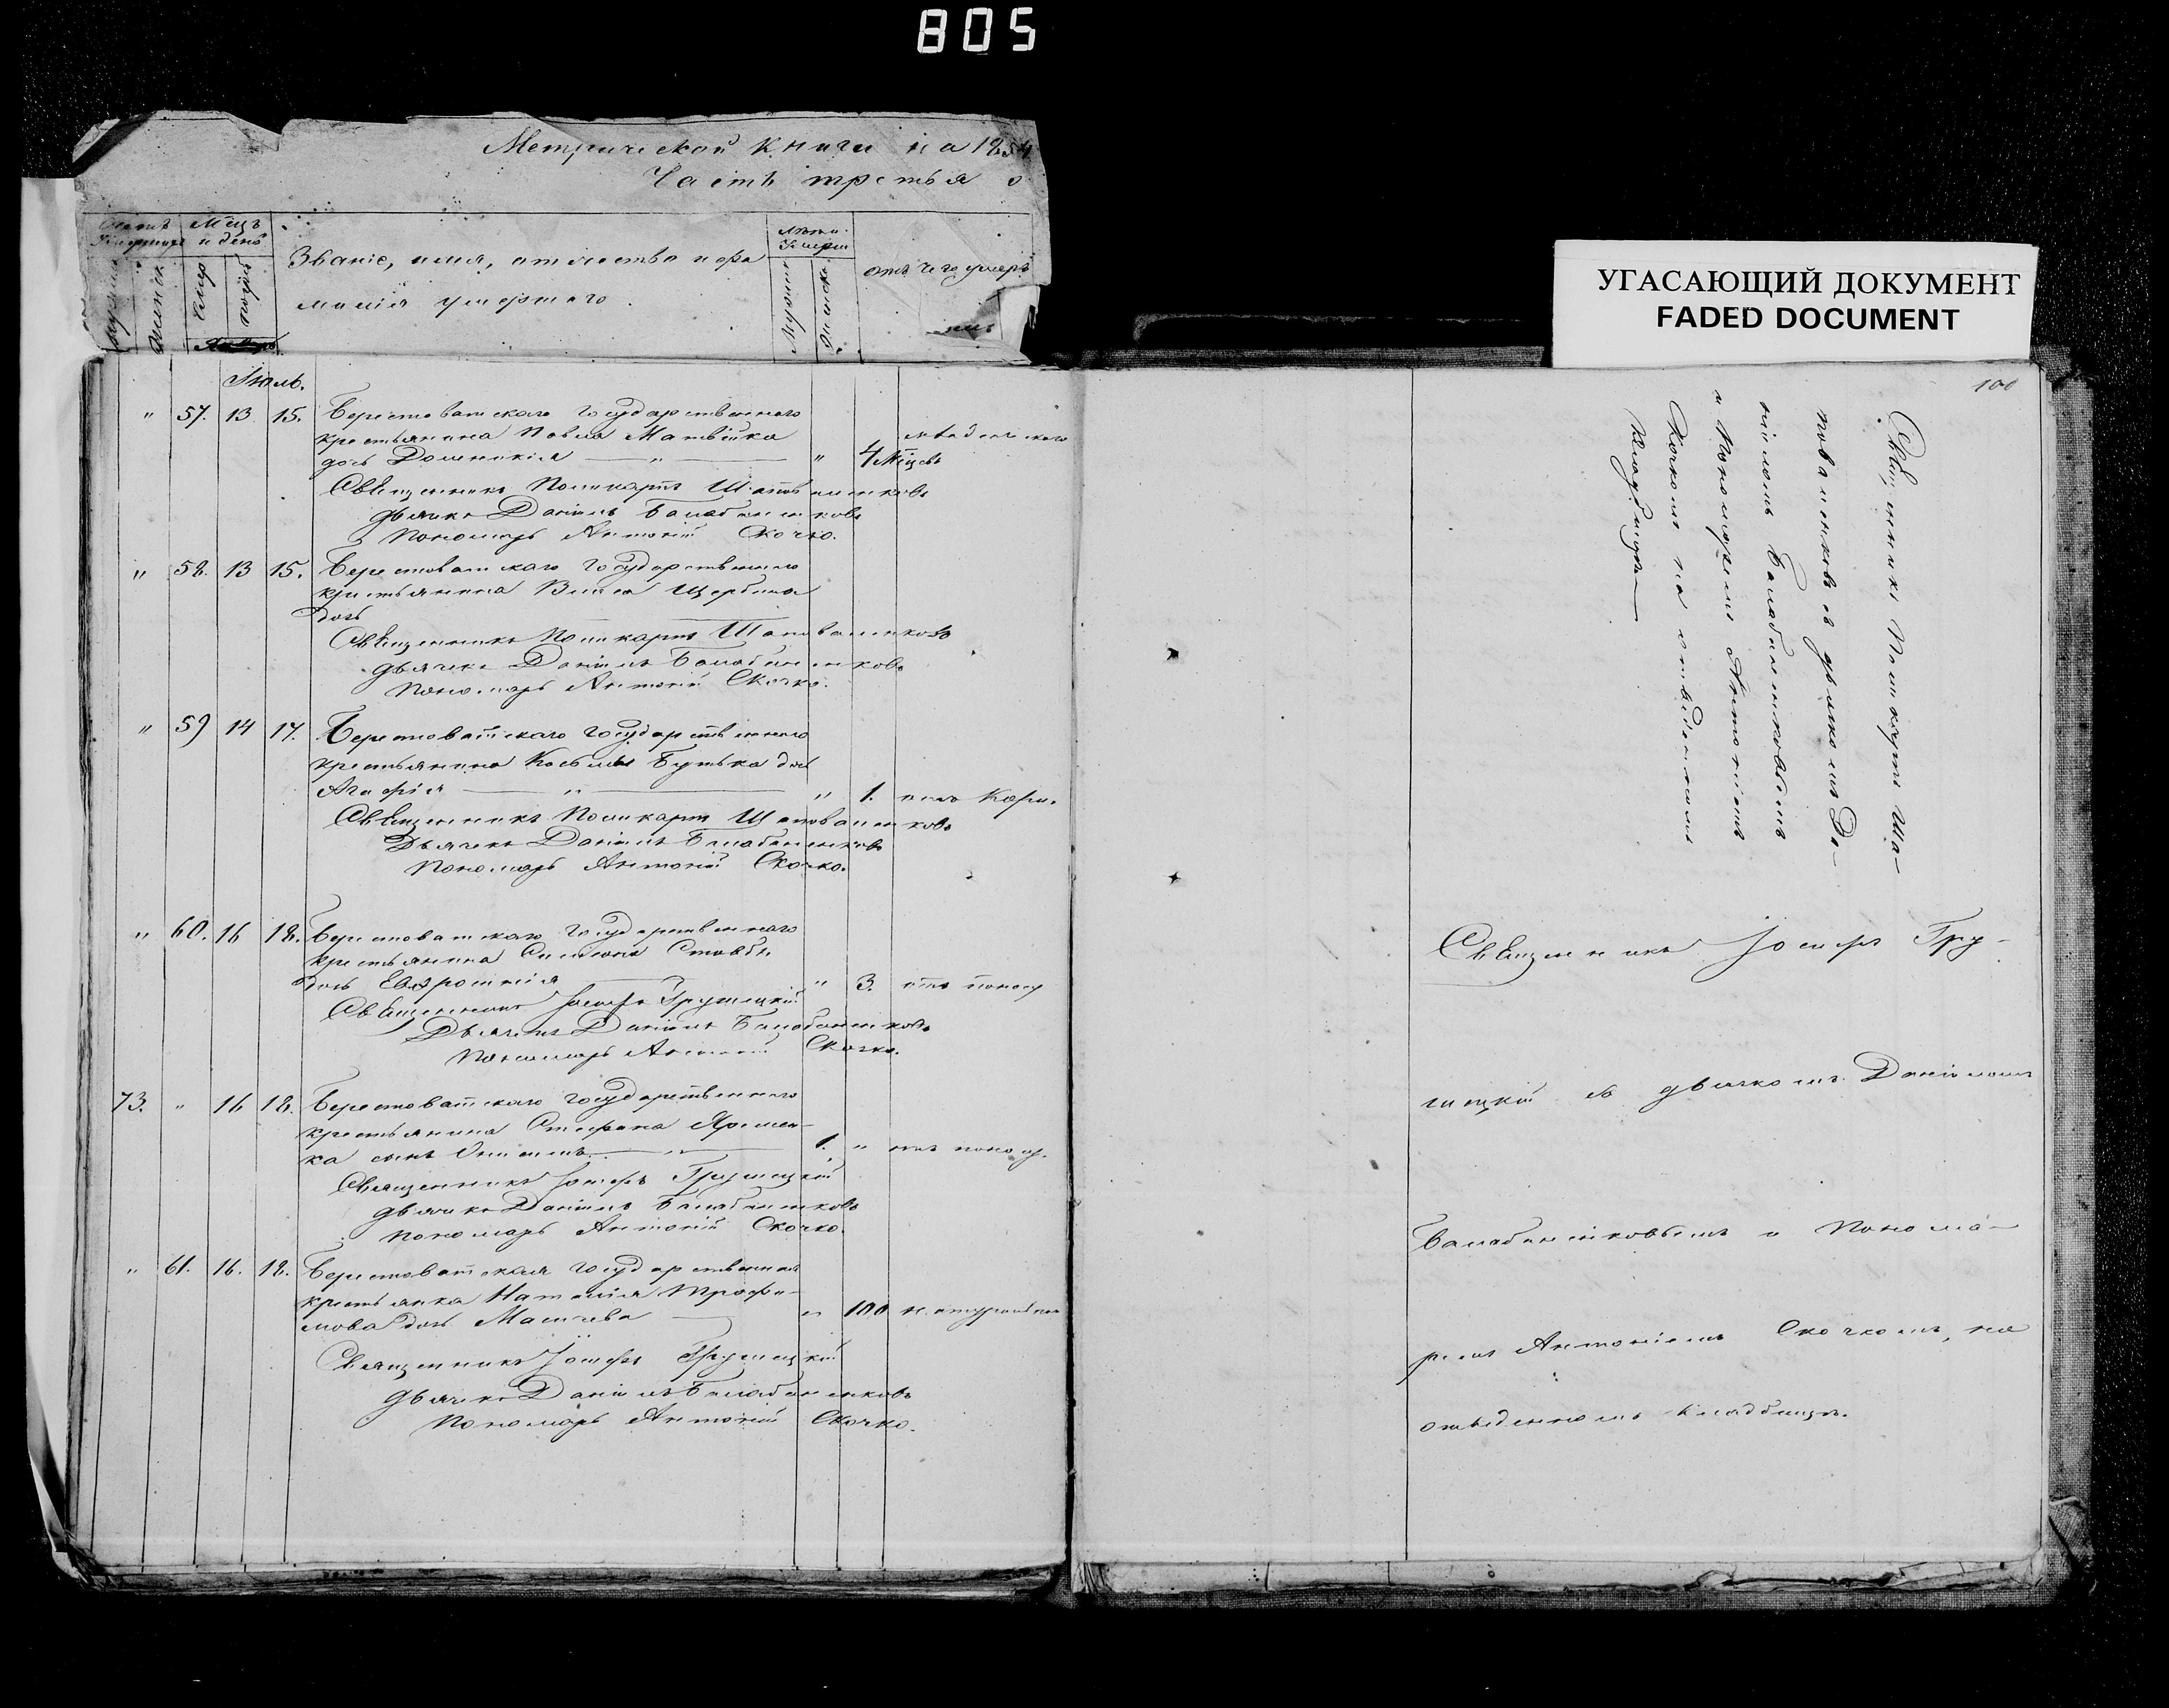 805
Метрической книги на 1854
Часть третья о
Мѣцъ
и день
Званіе, имя, отчество и фа
милія умершаго.
Лѣта
Умерш
отъ чего умеръ
УГАСАЮЩИЙ ДОКУМЕНТ
FADED DOCUMENT
100
Іюль.
" 57. 13 15. Берестоватскаго государственнаго
крестьянина Павла Матвійка
дочь Домникія — " — " 4 Мѣцевъ младенческаго
Священникъ Поликарпъ Шаповаленковъ
дьячекъ Даніилъ Балабаненковъ
Пономарь Антоній Скочко.
" 58. 13 15. Берестоватскаго государственнаго
крестьянина Щербина
дочь
Священникъ Поликарпъ Шаповаленковъ
дьячекъ Даніилъ Балабаненковъ
Пономарь Антоній Скочко.
" 59 14 17. Берестоватскаго государственнаго
крестьянина Косьмы Бутька дочь
Агафія — " — " 1. отъ Кори.
Священникъ Поликарпъ Шаповаленковъ
Дьячекъ Даніилъ Балабаненковъ
Пономарь Антоній Скочко.
" 60. 16 18. Берестоватскаго государственнаго
крестьянина Симеона
дочь Евфросинія — " 3. отъ поносу
Священникъ Іосифъ Грушецкій
Дьячекъ Даніилъ Балабаненковъ
Пономарь Антоній Скочко.
73. " 16 18. Берестоватскаго государственнаго
крестьянина Стефана Яремен-
ка сынъ — " — 1. " отъ поносу.
Священникъ Іосифъ Грушецкій
дьячекъ Даніилъ Балабаненковъ
Пономарь Антоній Скочко.
" 61. 16. 18. Берестоватская государственная
крестьянка Наталія Трофи-
мова дочь — " 100 натуральною
Священникъ Іосифъ Грушецкій
дьячекъ Даніилъ Балабаненковъ
Пономарь Антоній Скочко.
Священникъ Поликарпъ Ша-
поваленковъ съ дьячкомъ Да-
ніиломъ Балабаненковымъ
и Пономаремъ Антоніемъ
Скочкомъ на отведенномъ
кладбищѣ —
Священникъ Іосифъ Гру-
шецкій съ дьячкомъ Даніиломъ
Балабаненковымъ и Понома-
ремъ Антоніемъ Скочкомъ, на
отведенномъ кладбищѣ.